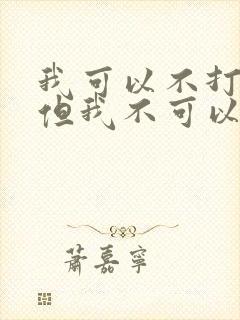 我可以不打
但我不可以
萧嘉宁